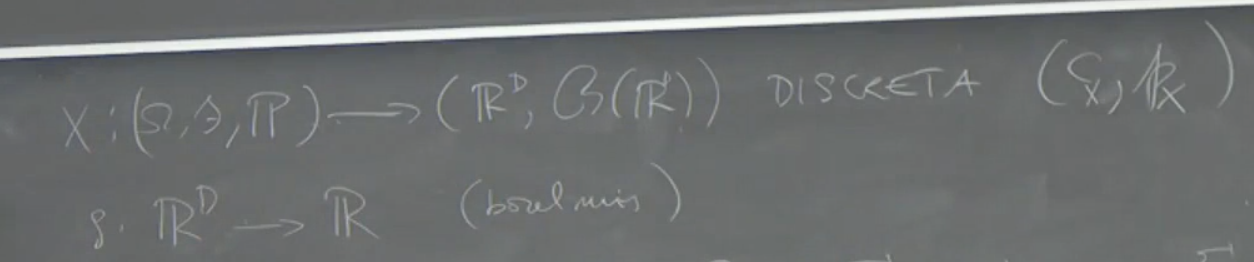 X: (Ω, A, ℙ) → (ℝᴰ, B(ℝᴰ)) DISCRETA (Sₓ, pₓ)
g: ℝᴰ → ℝ (borel mis)